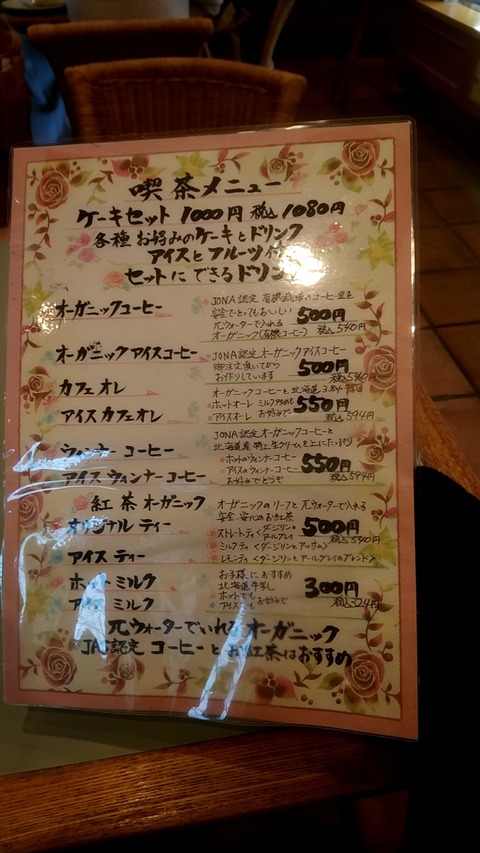 喫茶メニュー
ケーキセット 1000円 税込 1080円
各種 お好みのケーキとドリンク
アイスとフルーツ付
セットにできるドリン
オーガニックコーヒー
JONA認定 有機栽培のコーヒー豆を
安全でとってもおいしい
元ウォーターで入れる
オーガニック(有機コーヒー)
500円
税込540円
オーガニックアイスコーヒー
JONA認定オーガニックアイスコーヒー
御注文頂いてから
お作りしています
500円
税込540円
カフェオレ
アイスカフェオレ
オーガニックコーヒーと北海道3.8牛乳
ホットオーレ
アイスオーレ お好みで
550円
税込594円
ウィンナーコーヒー
アイスウィンナーコーヒー
JONA認定オーガニックコーヒーと
北海道産特上生クリームを上にたっぷり
ホットのウィンナーコーヒー
アイスのウィンナーコーヒー
お好みでどうぞ
550円
税込594円
紅茶オーガニック
オリジナルティー
アイスティー
オーガニックのリーフと元ウォーターで入れる
安全、安心のお紅茶
ストレートティ<ダージリンと
アールグレイ
ミルクティ<ダージリンとアッサム>
レモンティ<ダージリンとアールグレイのブレンド>
500円
税込540円
ホットミルク
アイスミルク
お子様におすすめ
北海道牛乳
ホットでも
アイスでもお好みで
300円
税込324円
元ウォーターでいれるオーガニック
JAS認定 コーヒーとお紅茶はおすすめ